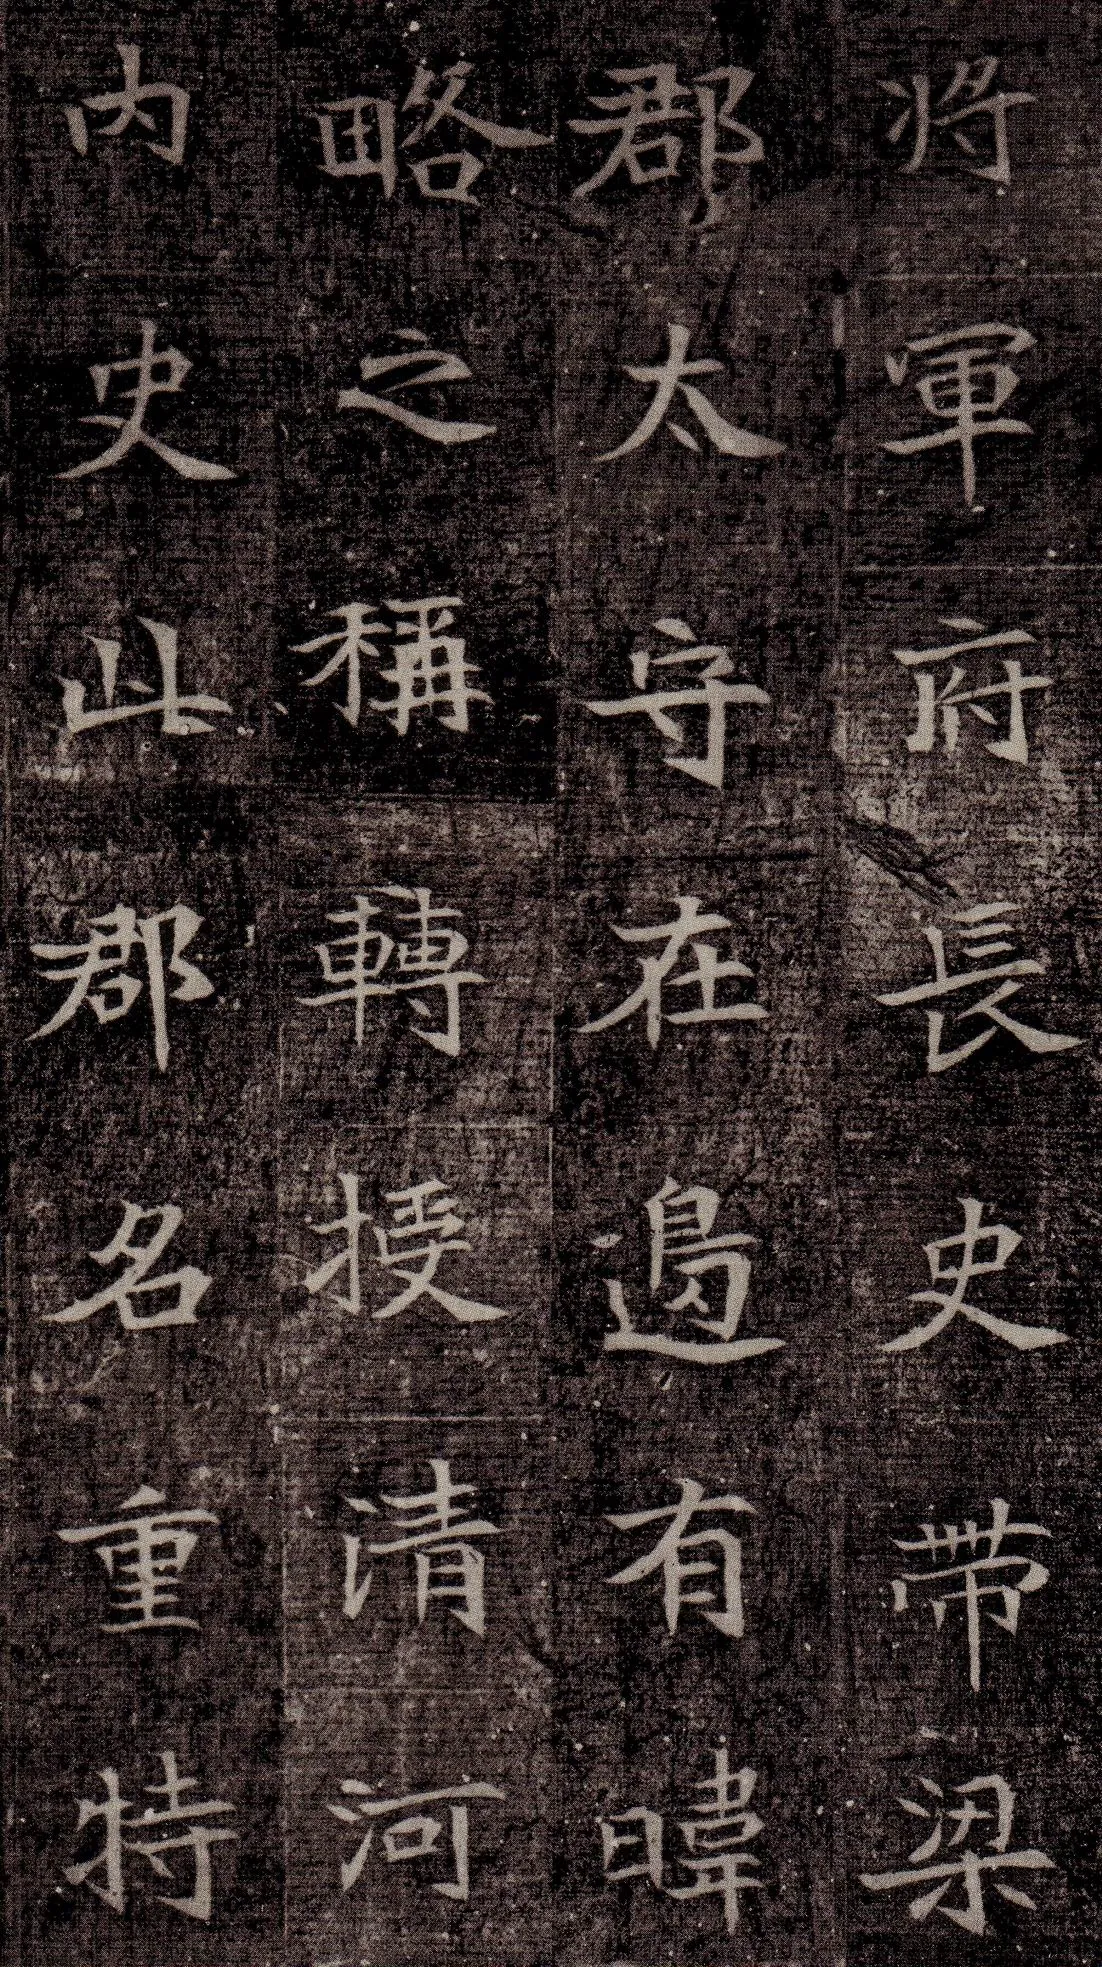 将軍府長史帶梁
郡太守在邊有暐
略之稱轉授清河
內史此郡名重特